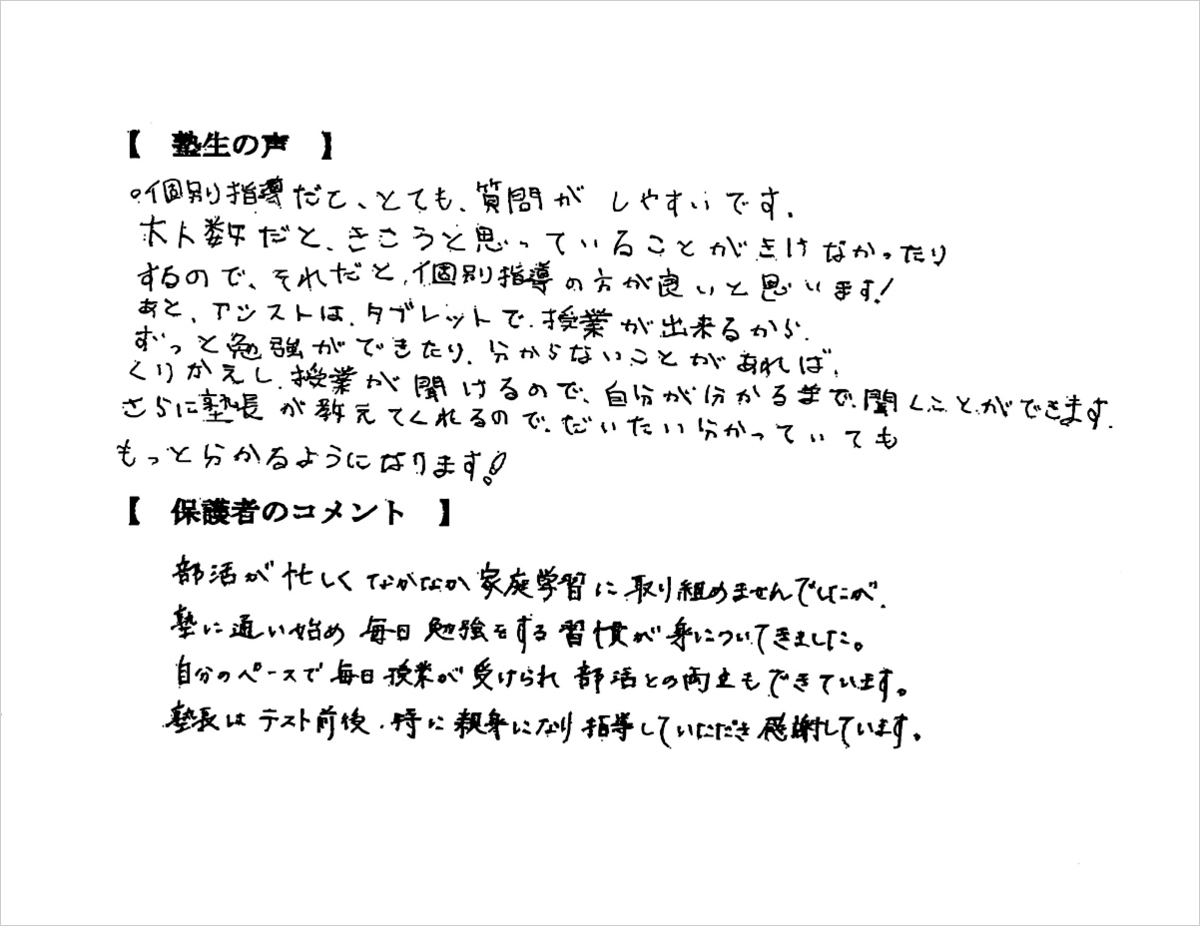 【 塾生の声 】
○個別指導だと、とても、質問が しやすいです.
大人数だと、きこうと思っていることがきけなかったり
するので、それだと、個別指導の方が良いと思います!
あと、アシストは、タブレットで、授業が出来るから、
ずっと勉強ができたり、分からないことがあれば、
くりかえし、授業が聞けるので、自分が分かるまで、聞くことができます.
さらに塾長が教えてくれるので、だいたい分かっていても
もっと分かるようになります!
【 保護者のコメント 】
部活が忙しくなかなか家庭学習に取り組めませんでしたが、
塾に通い始め毎日勉強をする習慣が身についてきました。
自分のペースで毎日授業が受けられ部活との両立もできています。
塾長はテスト前後、特に親身になり指導していただき感謝しています。